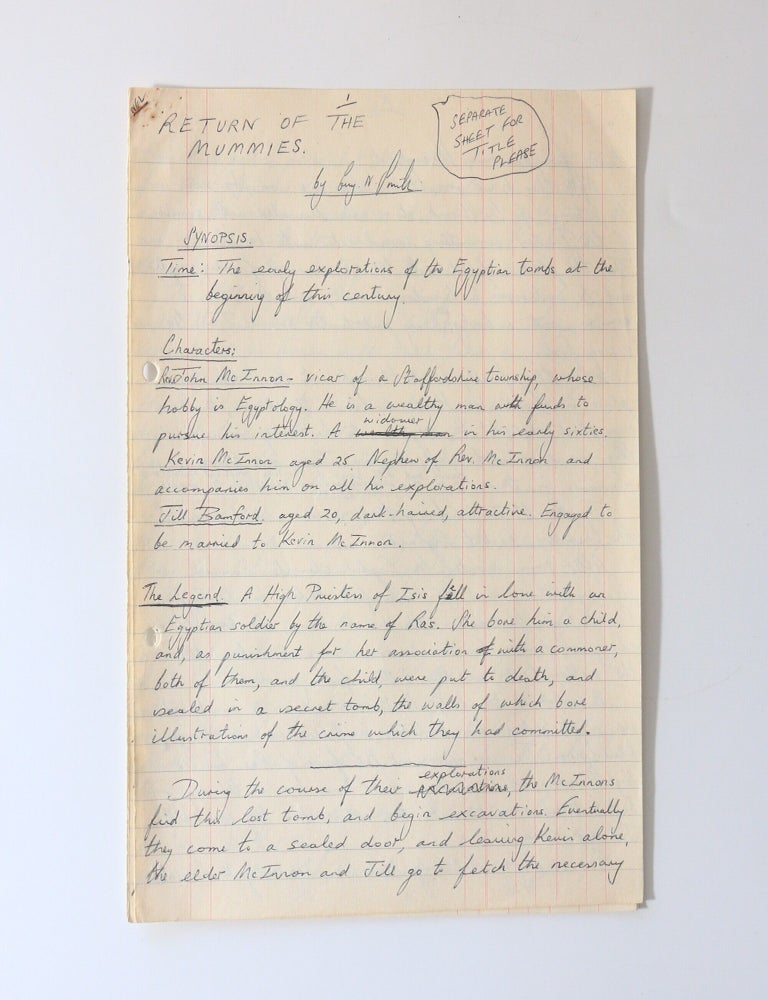 NEL
1
RETURN OF THE
MUMMIES.
SEPARATE
SHEET FOR
TITLE
PLEASE
by Guy. N Smith.
SYNOPSIS.
Time: The early explorations of the Egyptian tombs at the
beginning of this century.
Characters:
Rev. John McInnon - vicar of a Staffordshire township, whose
hobby is Egyptology. He is a wealthy man with funds to
widower
pursue his interest. A wealthy man in his early sixties.
Kevin McInnon aged 25. Nephew of Rev. McInnon and
accompanies him on all his explorations.
Jill Bamford, aged 20, dark-haired, attractive. Engaged to
be married to Kevin McInnon.
The Legend. A High Priestess of Isis fell in love with an
Egyptian soldier by the name of Ras. She bore him a child,
and, as punishment for her association with a commoner,
both of them, and the child, were put to death, and
sealed in a secret tomb, the walls of which bore
illustrations of the crime which they had committed.
explorations
During the course of their the McInnons
find this lost tomb, and begin excavations. Eventually
they come to a sealed door, and leaving Kevin alone,
the elder McInnon and Jill go to fetch the necessary